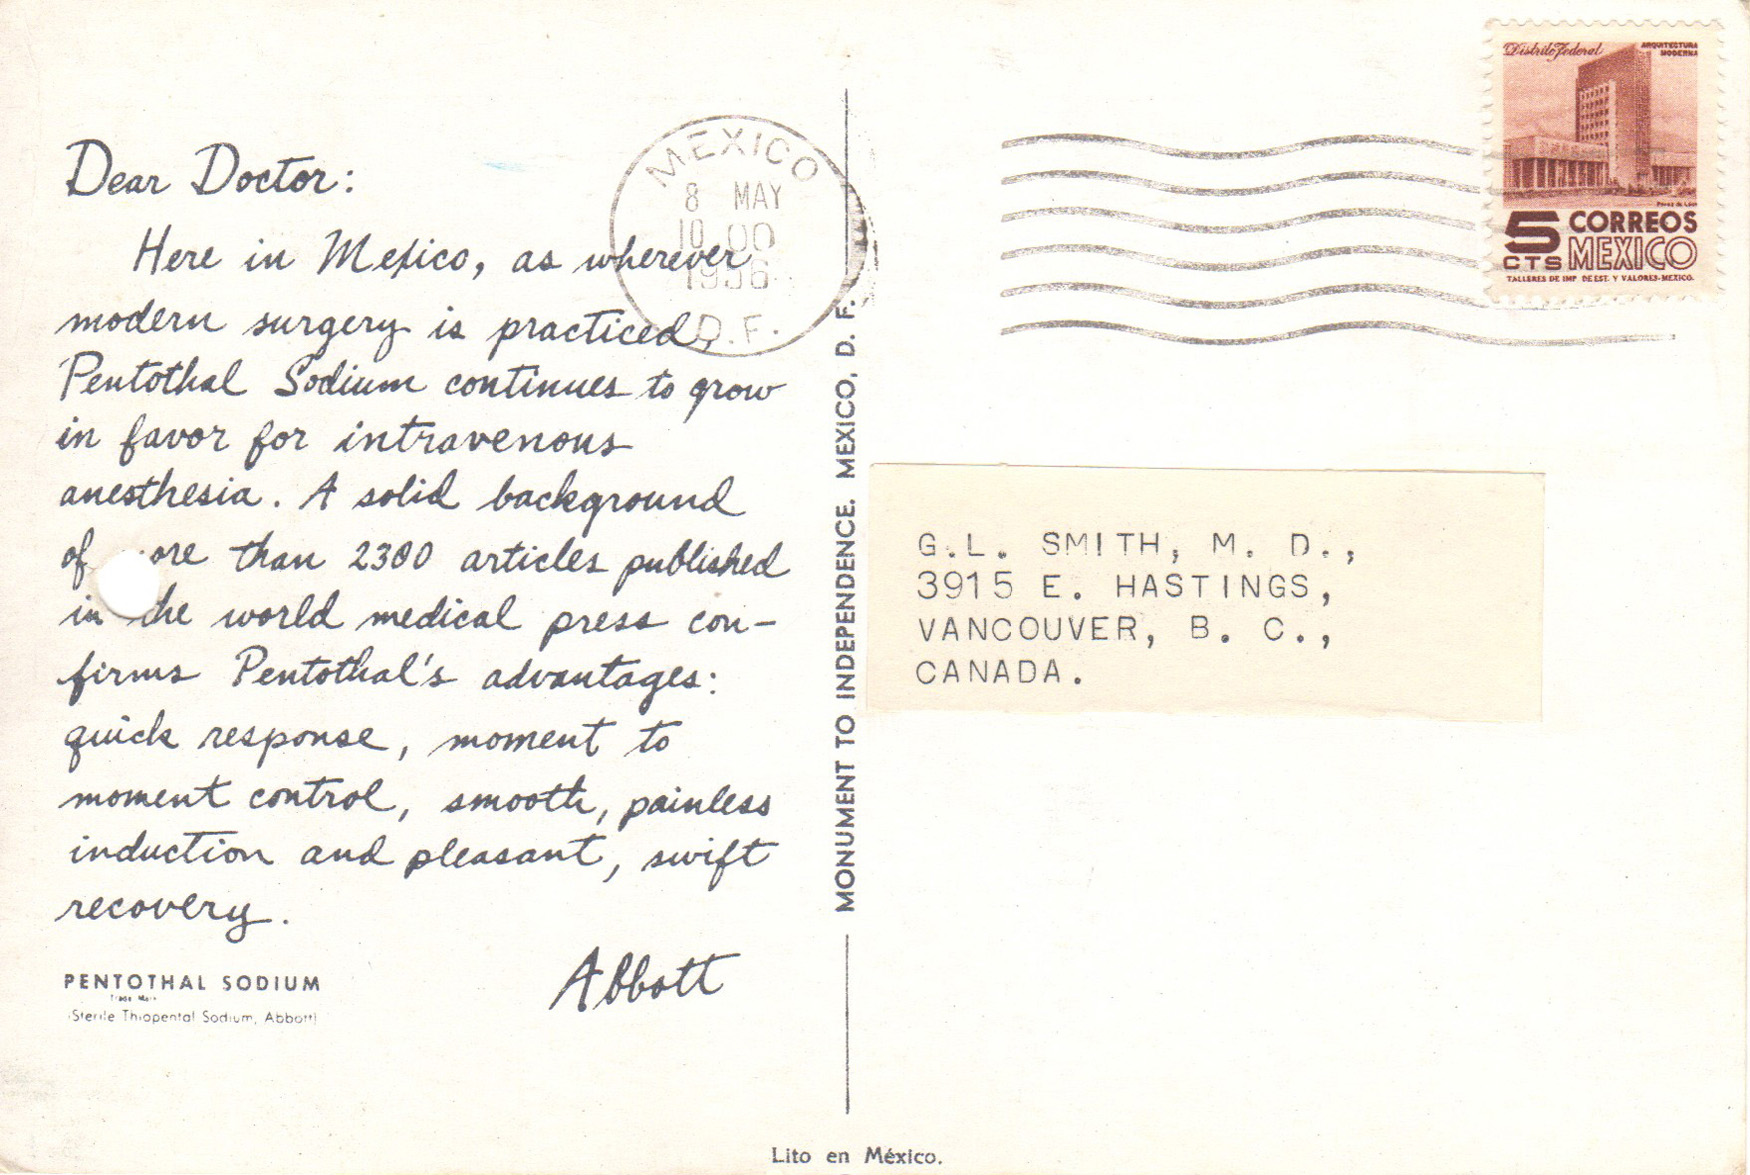 Dear Doctor:
Here in Mexico, as wherever
modern surgery is practiced,
Pentothal Sodium continues to grow
in favor for intravenous
anesthesia. A solid background
of ore than 2300 articles published
in the world medical press con-
firms Pentothal's advantages:
quick response, moment to
moment control, smooth, painless
induction and pleasant, swift
recovery.
Abbott
PENTOTHAL SODIUM
Trade Mark
(Sterile Thiopental Sodium, Abbott)
MONUMENT TO INDEPENDENCE. MEXICO, D. F.
Lito en México.
MEXICO
8 MAY
10 00
1956
D.F.
Distrito Federal
ARQUITECTURA
MODERNA
5 CTS
CORREOS
MEXICO
TALLERES DE IMP. DE EST. Y VALORES-MEXICO.
G.L. SMITH, M. D.,
3915 E. HASTINGS,
VANCOUVER, B. C.,
CANADA.